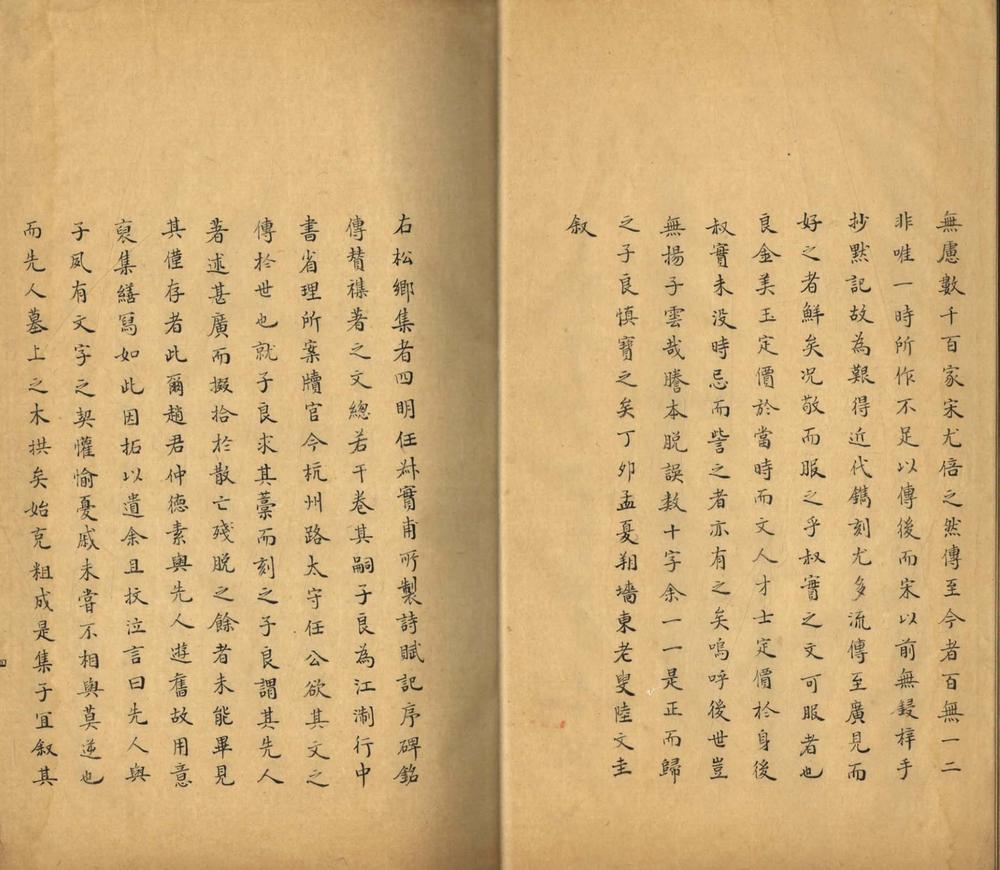 無慮數千百家宋尤倍之然傳至今者百無一二
非唯一時所作不足以傳後而宋以前無鋟梓手
抄默記故為艱得近代鐫刻尤多流傳至廣見而
好之者鮮矣况敬而服之乎叔實之文可服者也
良金美玉定價於當時而文人才士定價於身後
叔實未没時忌而訾之者亦有之矣嗚呼後世豈
無揚子雲哉謄本脱誤数十字余一一是正而歸
之子良慎寶之矣丁夘孟夏朔墻東老叟陸文圭
叙
右松鄉集者四明任叔實甫所製詩賦記序碑銘
傳賛襍著之文總若干卷其嗣子良為江淛行中
書省理所案牘官今杭州路太守任公欲其文之
傳於世也就子良求其藁而刻之子良謂其先人
著述甚廣而掇拾於散亡殘脱之餘者未能畢見
其僅存者此爾趙君仲德素與先人遊舊故用意
裒集繕寫如此因拓以遺余且抆泣言曰先人與
子夙有文字之契懽愉憂戚未嘗不相與莫逆也
而先人墓上之木拱矣始克粗成是集子宜叙其